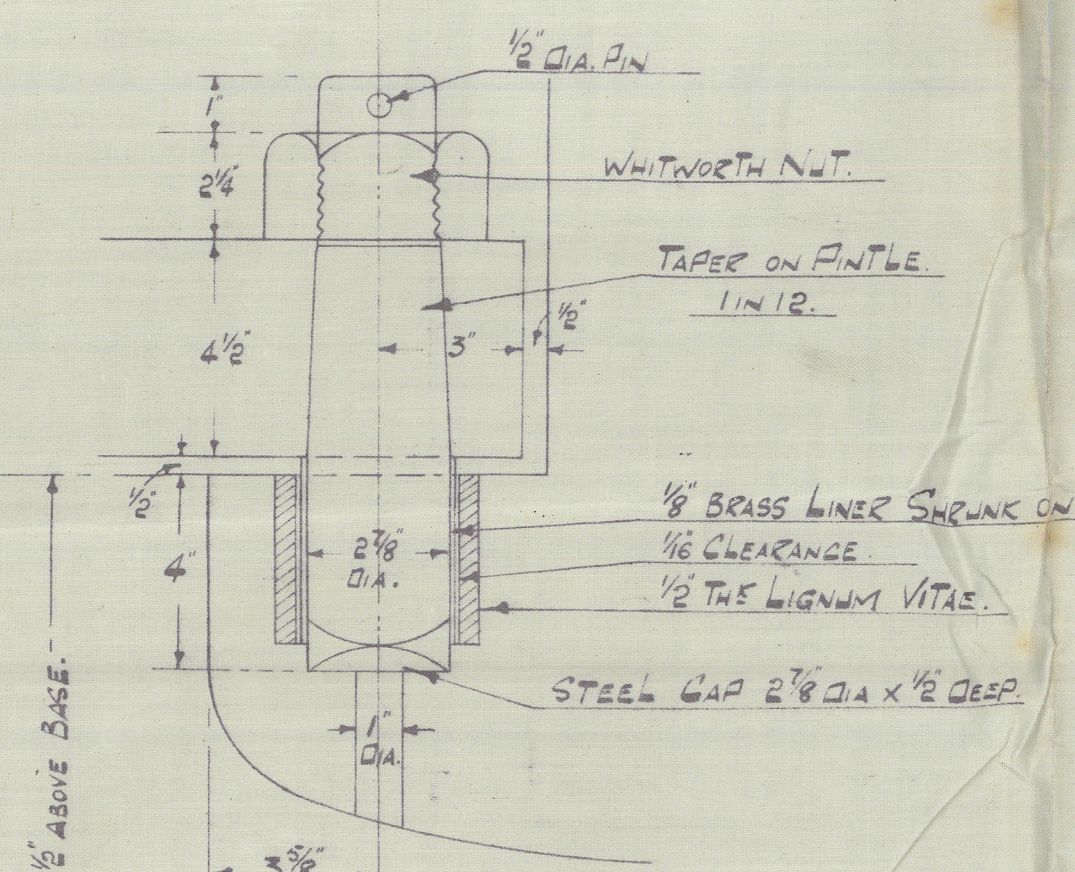 1/2" DIA. PIN
1"
WHITWORTH NUT.
2 1/4"
TAPER ON PINTLE.
1 IN 12.
1/2"
3"
4 1/2"
1/2"
1/8" BRASS LINER SHRUNK ON
1/16" CLEARANCE.
2 7/8"
DIA.
4"
1/2" THK LIGNUM VITAE.
STEEL CAP 2 7/8" DIA x 1/2" DEEP.
1"
DIA.
1/2" ABOVE BASE.
3 5/8"